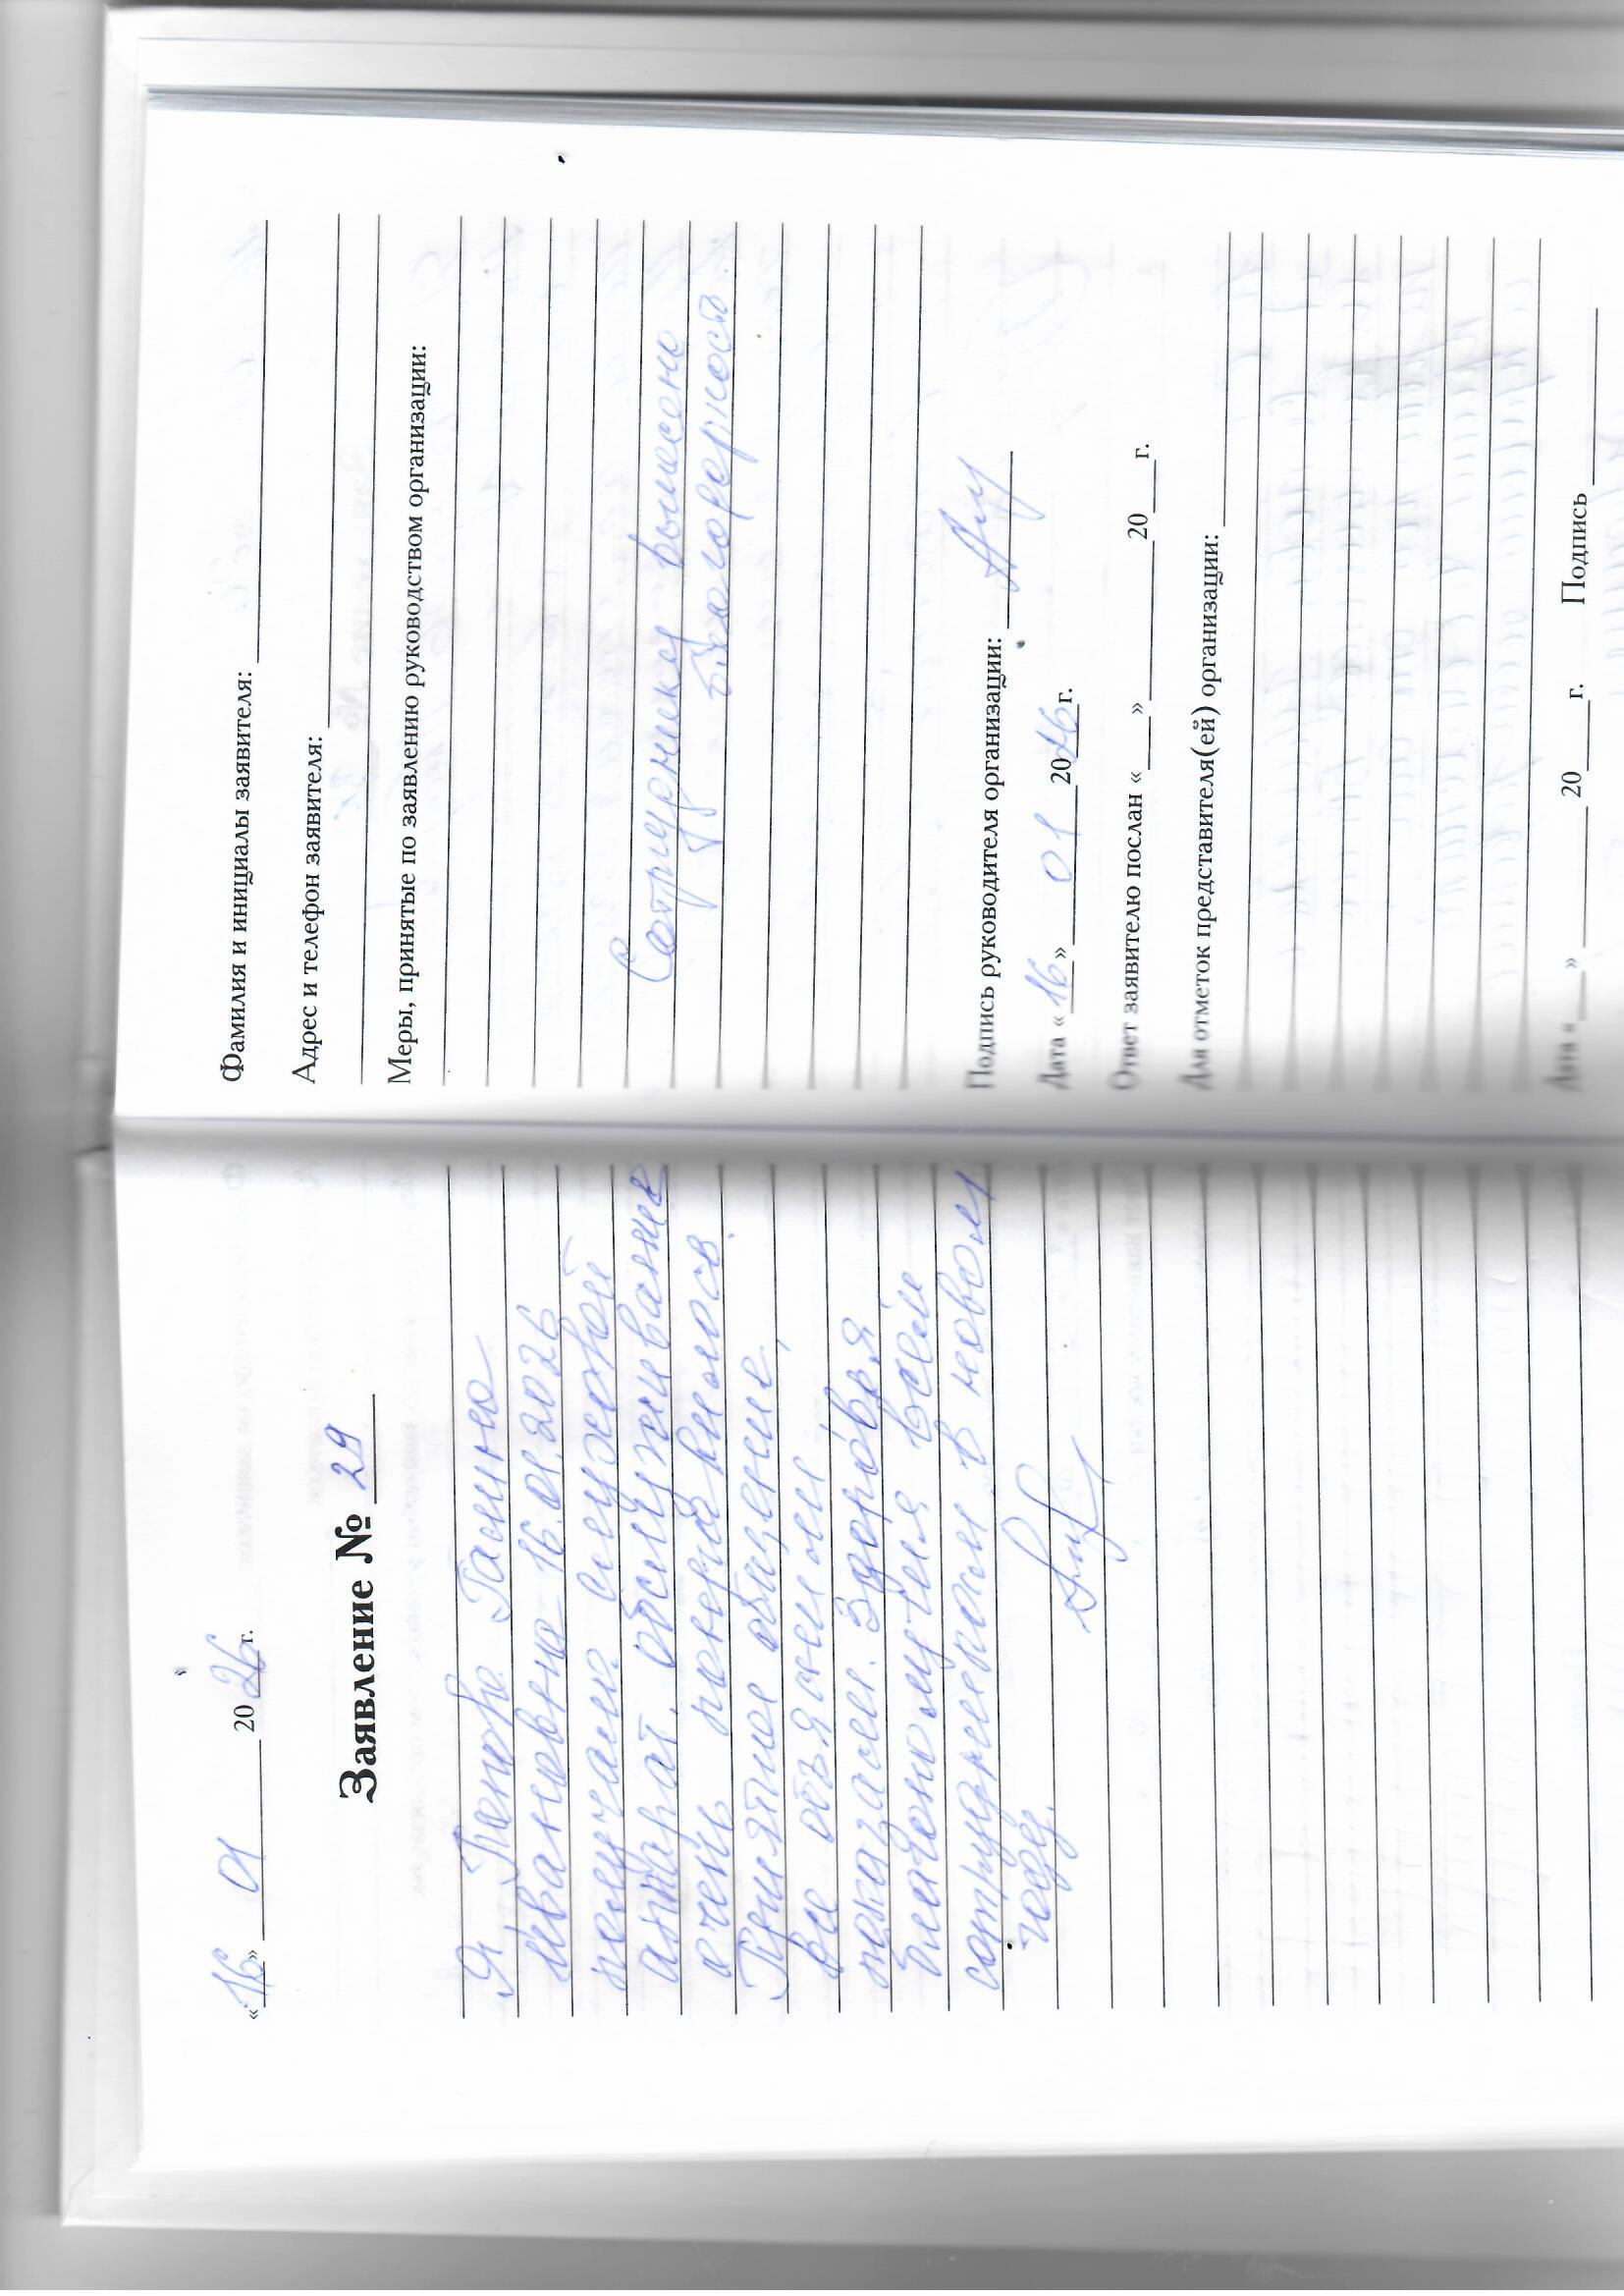 «16» 01 2026 г.
Заявление № 29
Я Попова Галина
Ивановна 16.01.2026
получала слуховой
аппарат. обслуживание
очень понравилось.
Приятное общение,
все объяснили,
показали. Здоровья
благополучия всем
сотрудникам в новом
году.
Фамилия и инициалы заявителя:
Адрес и телефон заявителя:
Меры, принятые по заявлению руководством организации:
Сотруднику вынесено
благодарность
Подпись руководителя организации:
Дата «16» 01 2026 г.
Ответ заявителю послан «___» 20___г.
Для отметок представителя(ей) организации:
Дата «___» 20___г. Подпись